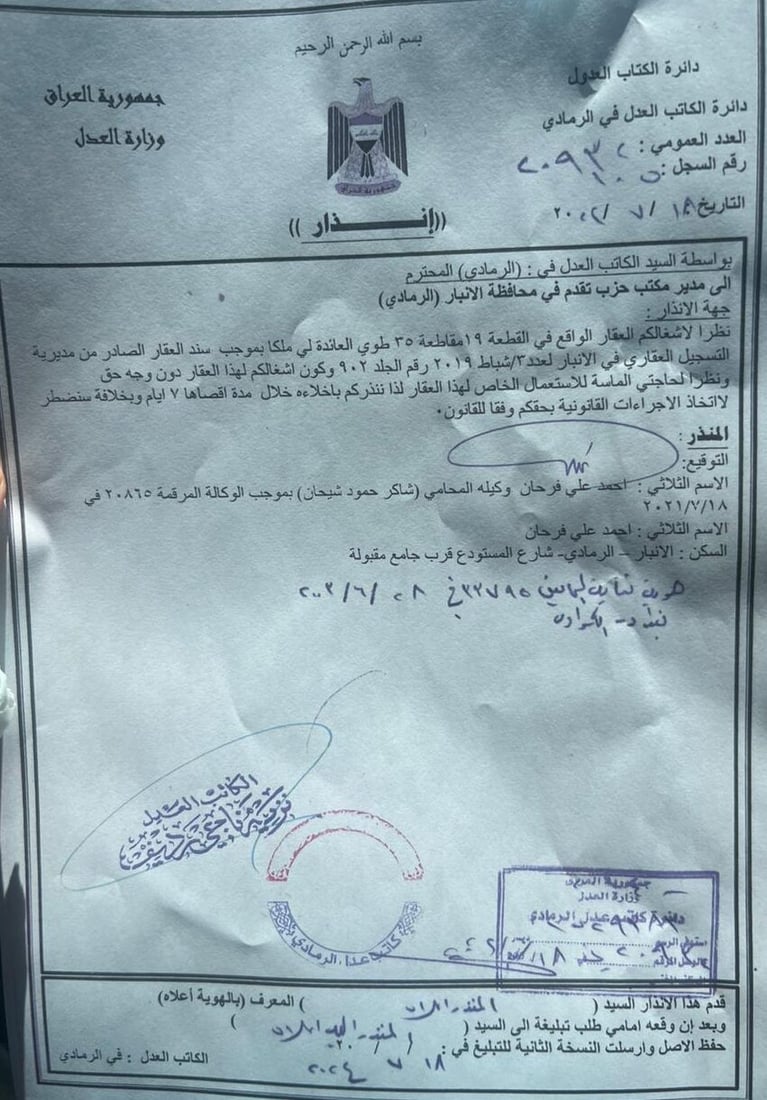 بسم الله الرحمن الرحيم
دائرة الكتاب العدول
دائرة الكاتب العدل في الرمادي
العدد العمومي :
رقم السجل :
التاريخ ١٨ / ٧ /
جمهورية العراق
وزارة العدل
((إنــــذار))
بواسطة السيد الكاتب العدل في : (الرمادي) المحترم
الى مدير مكتب حزب تقدم في محافظة الانبار (الرمادي)
جهة الانذار :
نظرا لاشغالكم العقار الواقع في القطعة ١٩مقاطعة ٣٥ طوي العائدة لي ملكا بموجب سند العقار الصادر من مديرية
التسجيل العقاري في الانبار لعدد٣/شباط ٢٠١٩ رقم الجلد ٩٠٢ وكون اشغالكم لهذا العقار دون وجه حق
ونظرا لحاجتي الماسة للاستعمال الخاص لهذا العقار لذا ننذركم باخلاءه خلال مدة اقصاها ٧ ايام وبخلافة سنضطر
لااتخاذ الاجراءات القانونية بحقكم وفقا للقانون.
المنذر :
التوقيع:
الاسم الثلاثي : احمد علي فرحان وكيله المحامي (شاكر حمود شيحان) بموجب الوكالة المرقمة ٢٠٨٦٥ في
٢٠٢١/٧/١٨
الاسم الثلاثي : احمد علي فرحان
السكن : الانبار – الرمادي- شارع المستودع قرب جامع مقبولة
هوية نقابة المحامين ٣٣٧٩٥ في
الكاتب العدل
كاتب عدل الرمادي
جمهورية العراق
وزارة العدل
دائرة كاتب عدل الرمادي
قدم هذا الانذار السيد ( المنذر اعلاه ) المعرف (بالهوية أعلاه)
وبعد إن وقعه امامي طلب تبليغة الى السيد ( المنذر اليه اعلاه )
حفظ الاصل وارسلت النسخة الثانية للتبليغ في : / / ٢٠
١٨ ٧ ٢٠٢٤
الكاتب العدل : في الرمادي